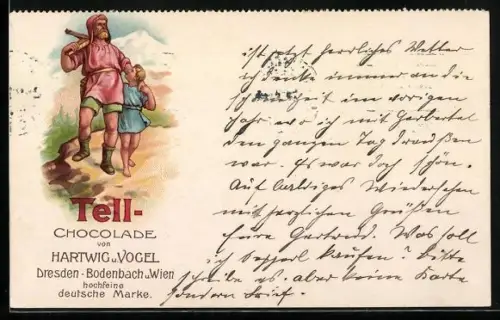 Tell-
CHOCOLADE
von
HARTWIG u. VOGEL
Dresden - Bodenbach u. Wien
hochfeine
deutsche Marke.
ist jetzt herrliches Wetter
ich denke immer an die
schöne Zeit im vorigen
Jahr wo ich mit Herbertel
den ganzen Tag draußen
war. Es war doch schön.
Auf baldiges Wiedersehen
mit herzlichen Grüßen
Eure Gertrud. Was soll
ich kaufen? Bitte
schreibe es. aber keine Karte
sondern Brief.